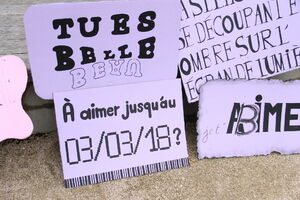 TU ES
BELLE
BEAU
À aimer jusqu'au
03/03/18 ?
SE DÉCOUPANT E
OMBRE SUR L'
ÉCRAN DE LUMIÈ
je t'
ABIME